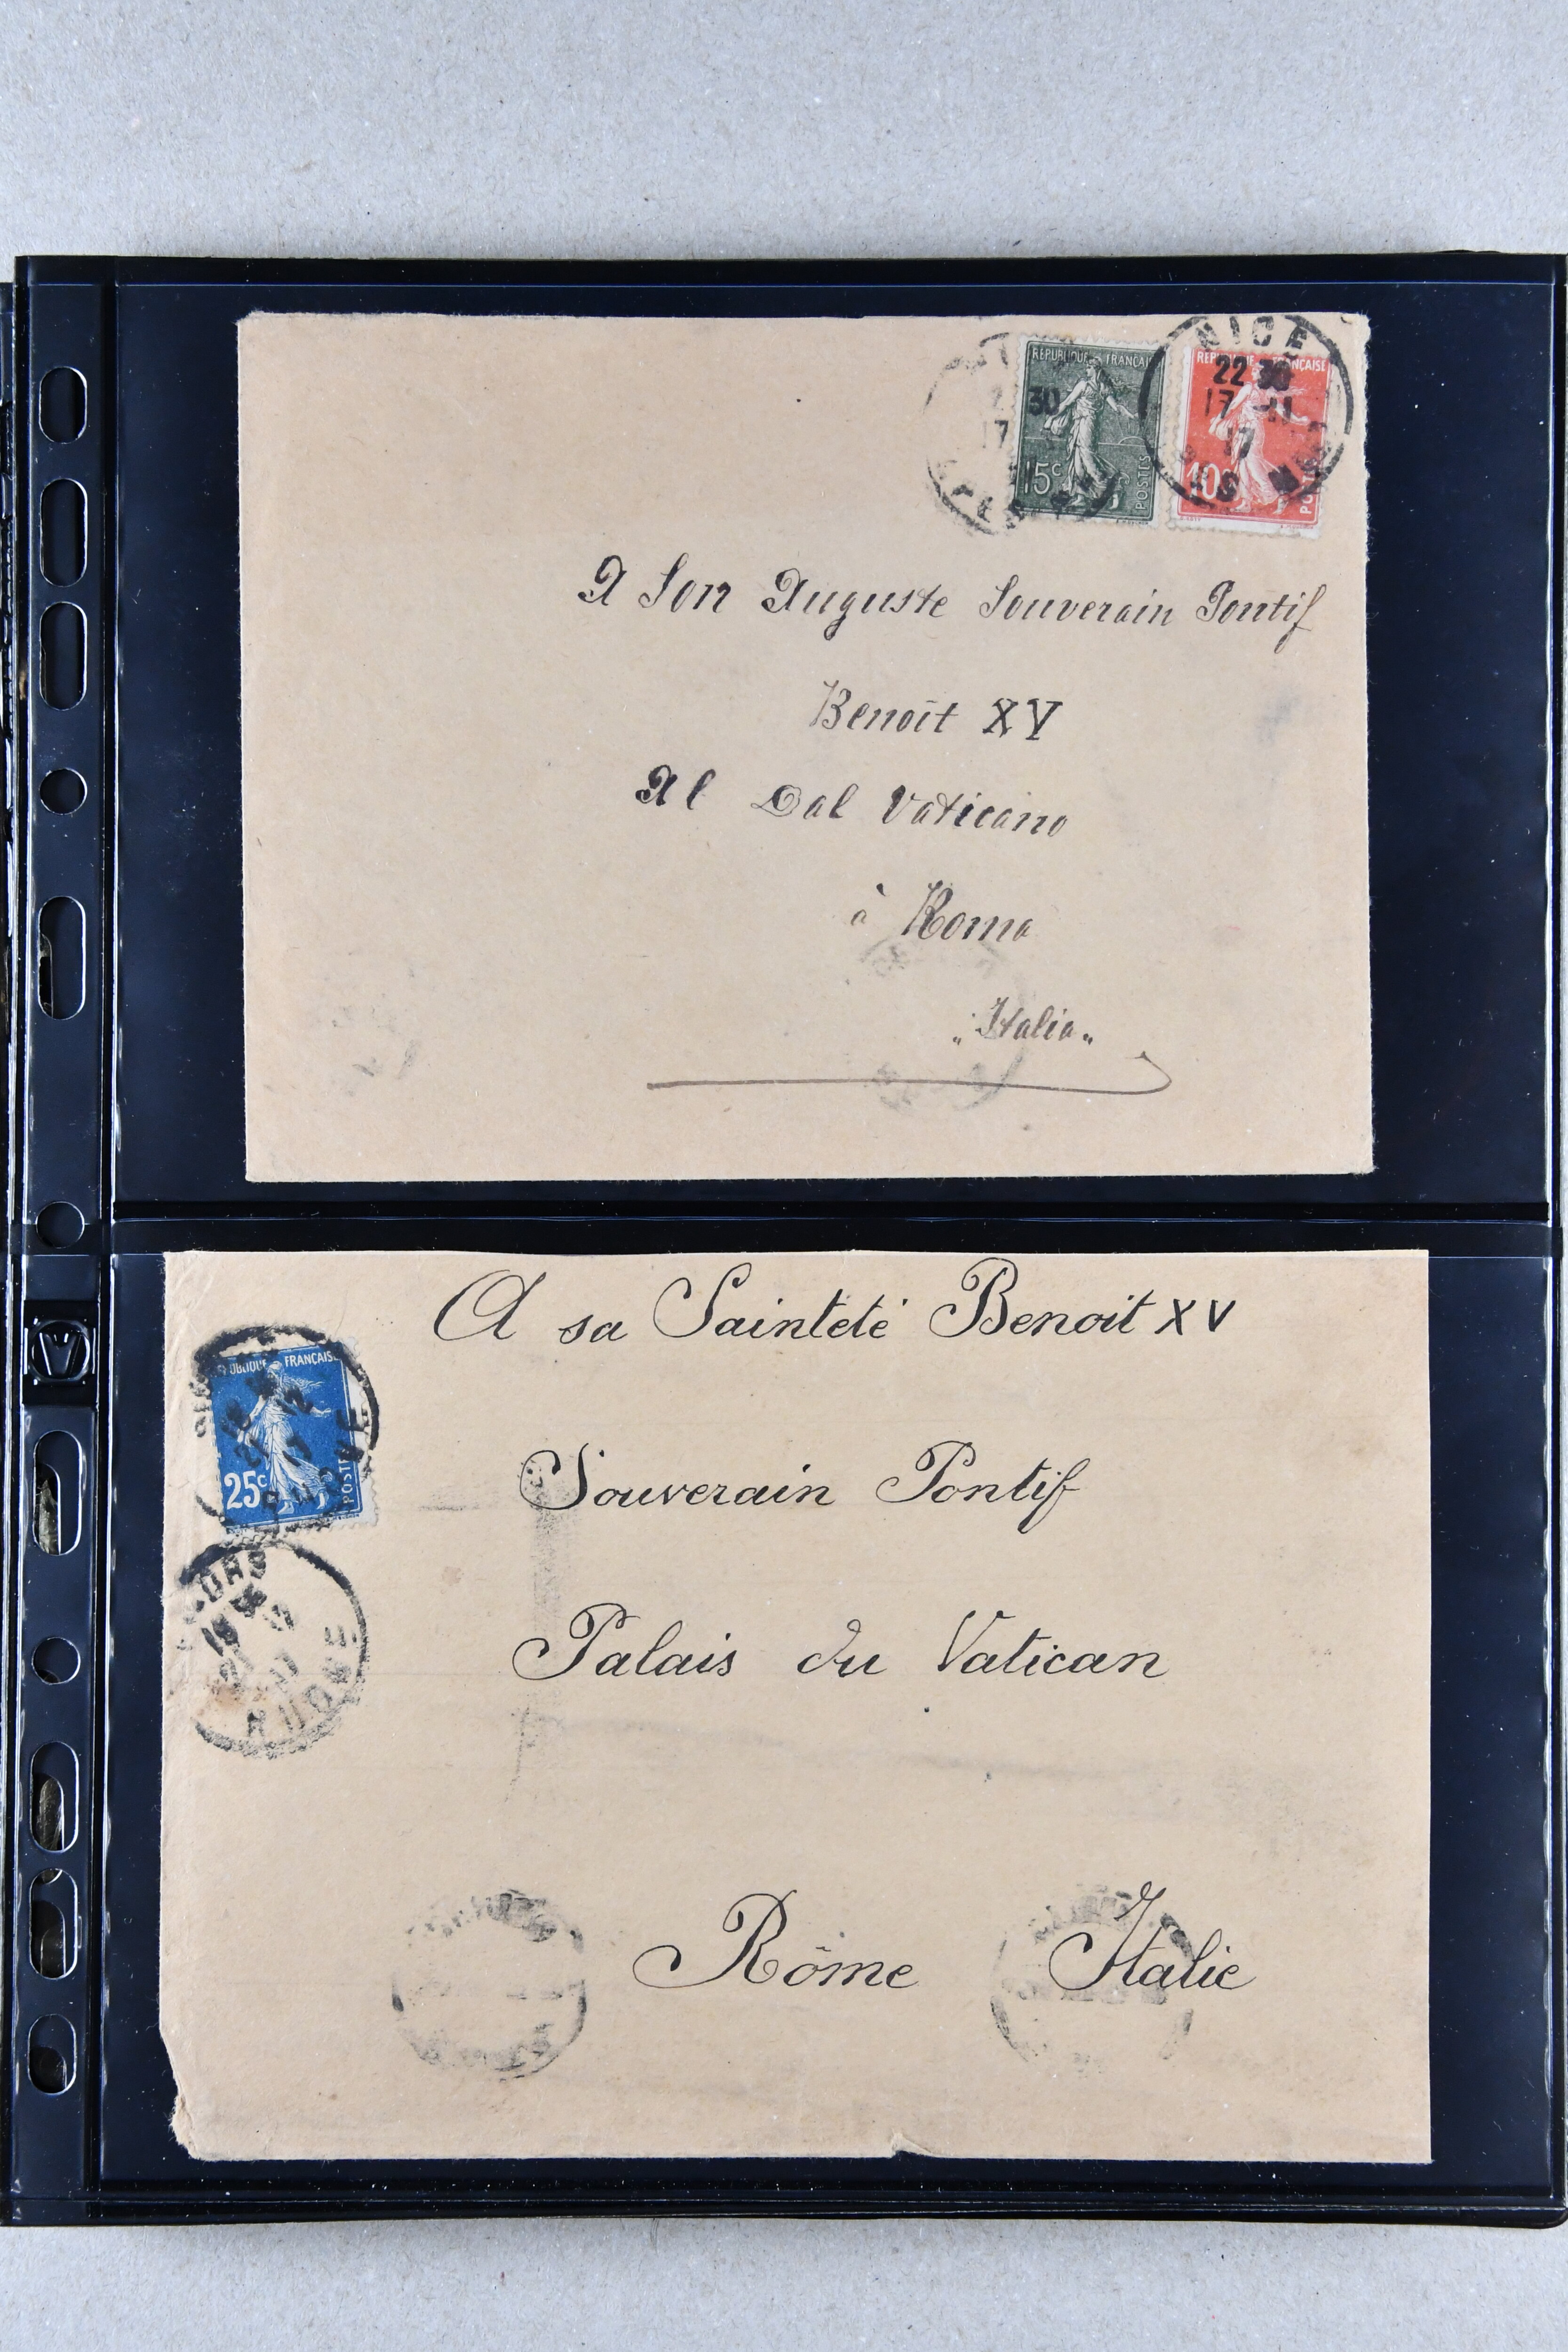 NICE
22 30
17 - 11
17
RÉPUBLIQUE FRANÇAISE
30
17
15c
POSTES
10c
A Son Auguste Souverain Pontif
Benoît XV
Al Dal Vaticano
à Roma
„Italia„
A sa Sainteté Benoit XV
FRANÇAISE
25c
POSTES
RHONE
Souverain Pontif
Palais du Vatican
RHONE
Rôme Italie